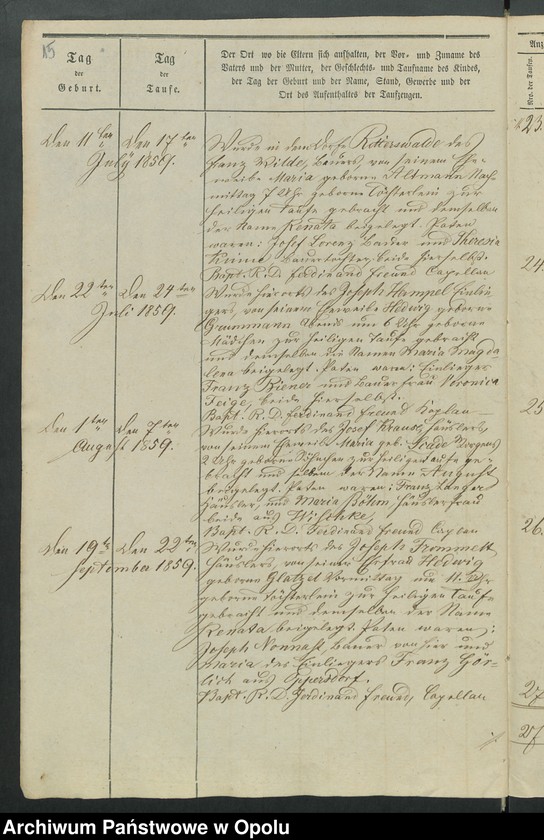 15
Tag
der
Geburt.
Tag
der
Taufe.
Der Ort wo die Eltern sich aufhalten, der Vor- und Zuname des
Vaters und der Mutter, der Geschlechts- und Taufname des Kindes,
der Tag der Geburt und der Name, Stand, Gewerbe und der
Ort des Aufenthaltes der Taufzeugen.
Anz
Nro. der Taufen.
Den 11ten Den 17ten
July 1859.
Wurde in dem Dorfe des
Franz Wilde, Bauers, von seinem Ehe-
weibe Maria geborne Altmann Nach-
mittag 7 Uhr geborne Töchterlein zur
heiligen Taufe gebracht und demselben
der Name Renata beigelegt. Paten
waren: Josef Lorenz Bauer und Theresia
Bauertochter, beide hierselbst.
Bapt. R. D. Ferdinand Freund Capellan
23.
Den 22ten Den 24ten
Juli 1859.
Wurde hierorts des Joseph Hampel Einlie-
gers, von seinem Eheweibe Hedwig geborne
Abends um 6 Uhr geborne
Mädchen zur heiligen Taufe gebracht
und demselben die Namen Maria Magda
lena beigelegt. Paten waren: Einlieger
Franz und Bauerfrau Veronica
Feige, beide hierselbst.
Bapt. R. D. Ferdinand Freund Kaplan
24.
Den 1ten Den 7ten
August 1859.
Wurde hierorts des Josef Häuslers,
von seinem Eheweibe Maria geb. Morgens
2 Uhr geborne Söhnchen zur heiligen Taufe ge-
bracht und selbem der Name August
beigelegt. Paten waren: Franz Langer
Häusler, und Maria Böhm, Häuslerfrau
beide aus
Bapt. R. D. Ferdinand Freund Caplan
25
Den 19ten Den 22ten
September 1859.
Wurde hierorts des Joseph
Häuslers, von seiner Ehefrau Hedwig
geborne Glatzel Vormittag um 11 Uhr
geborne Töchterlein zur heiligen Taufe
gebracht und demselben der Name
Renata beigelegt. Paten waren:
Joseph Nonnast, Bauer von hier und
Maria des Einliegers Franz Gör-
lich aus Oppersdorf.
Bapt. R. D. Ferdinand Freund, Capellan
26.
27
27
Archiwum Państwowe w Opolu